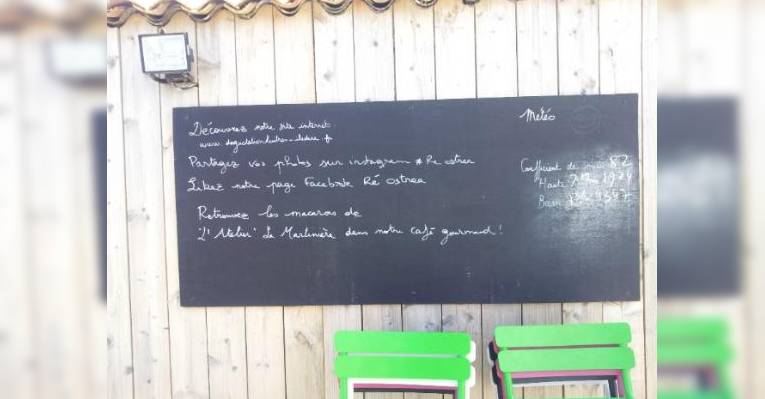 Découvrez notre site internet
Partagez vos photos sur instagram # Ré ostrea
Likez notre page Facebook Ré Ostrea
Retrouvez les macarons de
"L'Atelier" La Martinière dans notre café gourmand !
Météo
Coefficient de marée 82
Haute
Basse